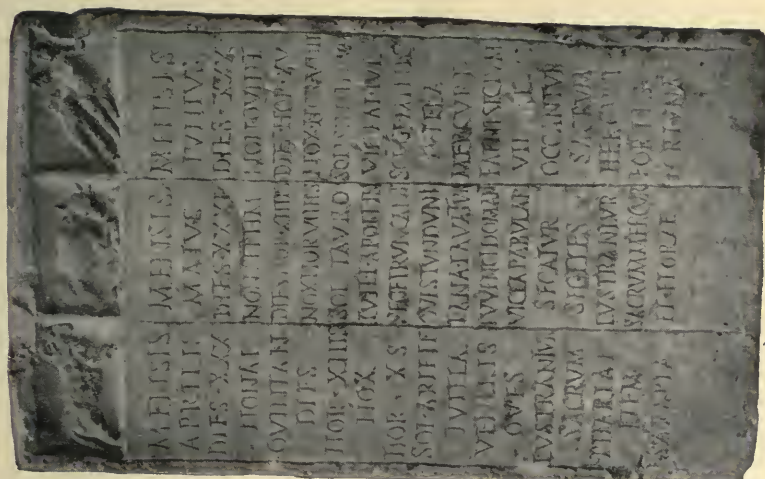 MENSIS
APRILIS
DIES·XXX
NONAE
QVINTAN
DIES
HOR·XIIIS
NOX
HOR·XS
SOL·ARIETE
TVTELA
VENERIS
OVES
LVSTRANTVR
SACRVM
PHARIAE
ITEM
SARAPIA
MENSIS
MAIVS
DIES·XXXI
NON·SEPTIM
DIES·HOR·XIIIIS
NOX·HOR·VIIIIS
SOL·TAVRO
TVTELA·APOLLIN
SEGET·RVNCANT
OVES·TONDENT
LANA·LAVATVR
IVVENCI·DOMANT
VICEA·PABVLAR
SECATVR
SEGETES
LVSTRANTVR
SACRVM·MERCVR
ET·FLORAE
MENSIS
IVNIVS
DIES·XXX
NON·QVINT
DIES·HOR·XV
NOX·HOR·VIIII
SOLIS·INSTITIVM
SOL·GEMINIS
TVTELA
MERCVRI
FAENISICIVM
VINEAE
OCCANTVR
SACRVM
HERCVLI
FORTIS
FORTVNAE